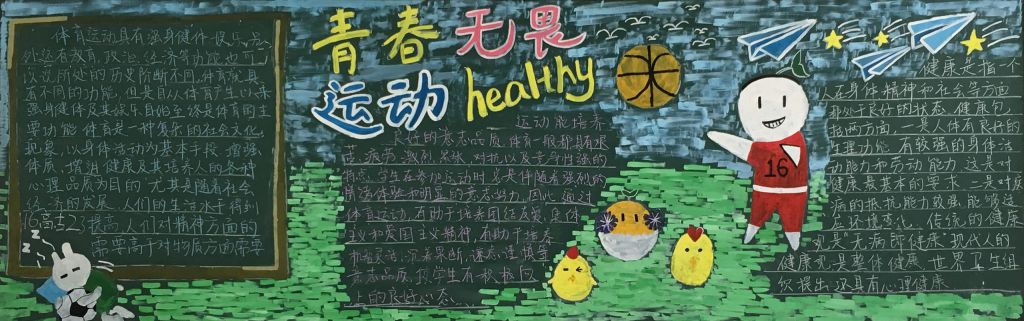 青春无畏
运动healthy
体育运动具有强身健体 娱乐 
以说所处的历史阶段不同 体育就具
有不同的功能 但是自从体育产生以来
强身健体及其娱乐目的至终是体育的主
要功能 体育是一种复杂的社会文化
现象 以身体活动为基本手段 增强
体质 增进健康及其培养人的各种
心理品质为目的 尤其是随着社会
经济的发展 人们的生活水平得到
提高 人们对精神方面的
需要高于对物质方面需要
16高古2
运动能培养
良好的意志品质 体育一般都具有艰
苦 疲劳 激烈 紧张 对抗以及竞争性强的
特点 学生在参加运动时总是伴随着强烈的
情绪体验和明显的意志努力 因此 通过
体育运动 有助于培养团结友爱 集体
主义和爱国主义精神 有助于培养
机智灵活 沉着果断 谦虚谨慎等
意志品质 使学生有积极向
上的良好心态
16
健康是指一个
人在身体 精神和社会等方面
都处于良好的状态 健康包
括两方面 一是人体有良好的
生理功能 有较强的身体活
动能力和劳动能力 这是对
健康最基本的要求 二是对疾
病的抵抗能力较强 能够适
应环境变化 传统的健康
观是“无病即健康”现代人的
健康观是整体健康 世界卫生组
织提出 还具有心理健康